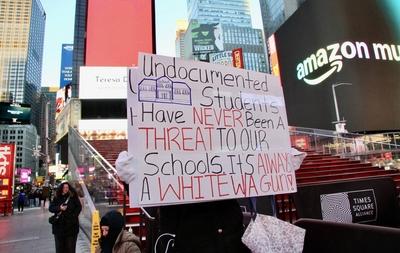 Undocumented
Students
Have NEVER Been A
THREAT TO OUR
Schools. ITS ALWAYS
A WHITE W A GUN!
amazon mu
Teresa D
TIMES
SQUARE
ALLIANCE